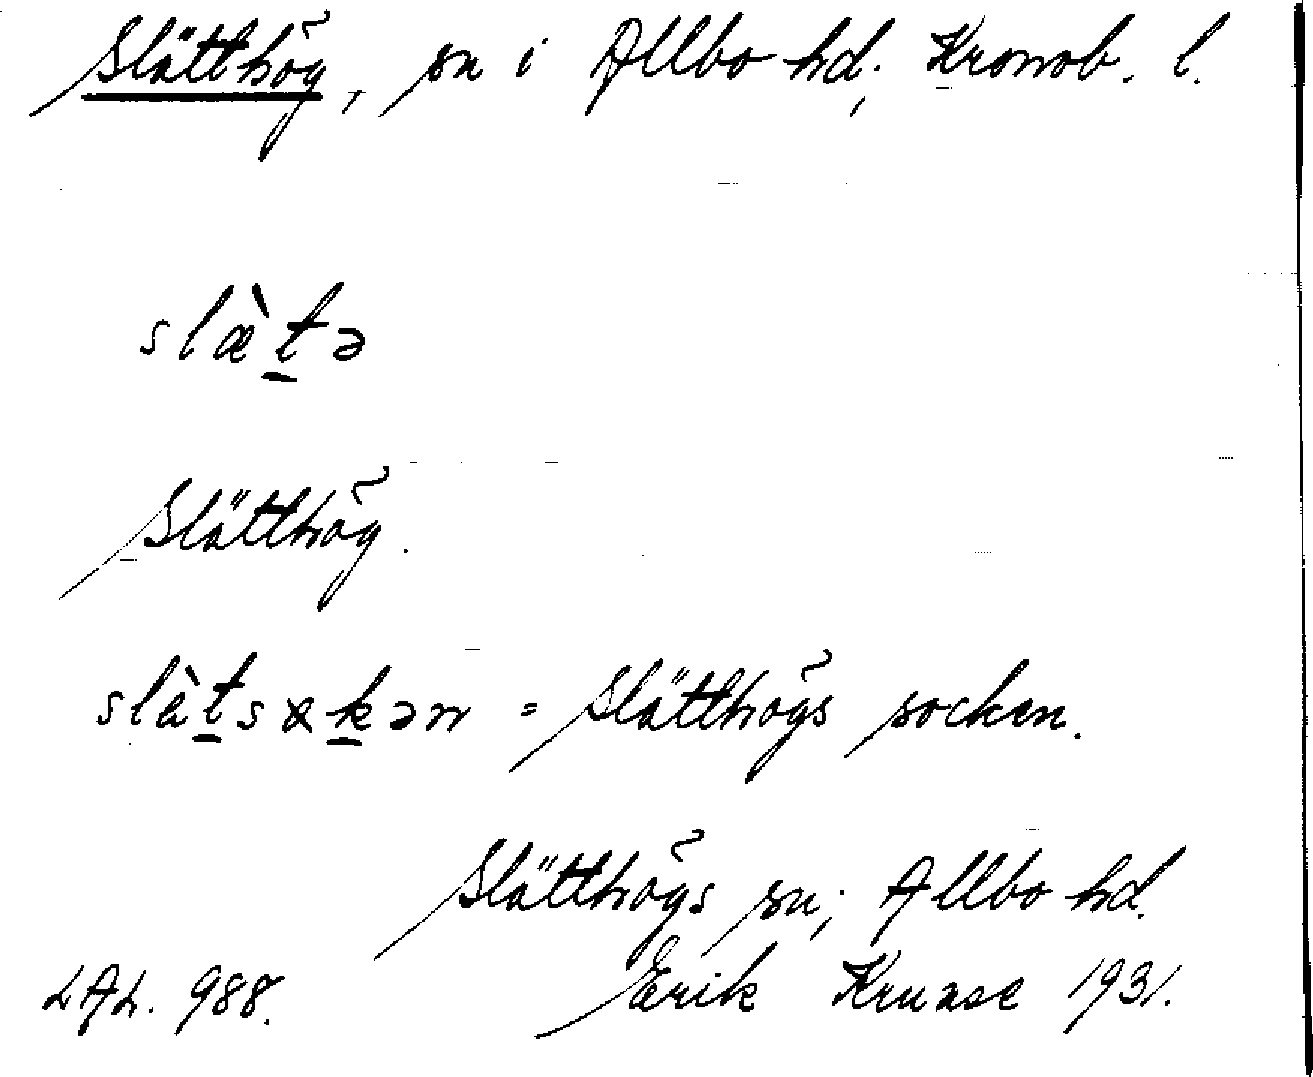 Slätthög, sn i Allbo hd, Kronob. l.
slæ̀t̠ə
Slätthög.
slæ̀t̠sɷk̠ən = Slätthögs socken.
Slätthögs sn, Allbo hd.
LAL. 988. Erik Kruase 1931.